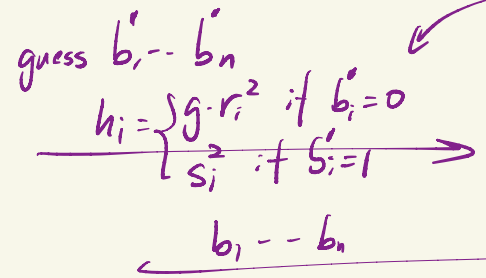 guess b'₁ -- b'ₙ
hᵢ = { g·rᵢ² if b'ᵢ = 0
sᵢ² if b'ᵢ = 1
b₁ -- bₙ